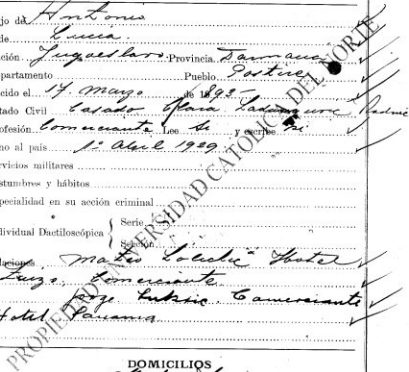 jo de Antonio
de Lucca
ción Jugoeslavo Provincia
partamento Pueblo Postire
cido el 17 Marzo de 1892-
tado Civil Casado Clara
ofesión Comerciante Lee si y escribe si
no al país 1º Abril 1929
rvicios militares
stumbres y hábitos
pecialidad en su acción criminal
dividual Dactiloscópica { Serie
Sección
laciones Mateo Hotel
Suizo, Comerciante
Jorge Luksic Comerciante
Hotel Panama
DOMICILIOS
PROPIEDAD UNIVERSIDAD CATOLICA DEL NORTE